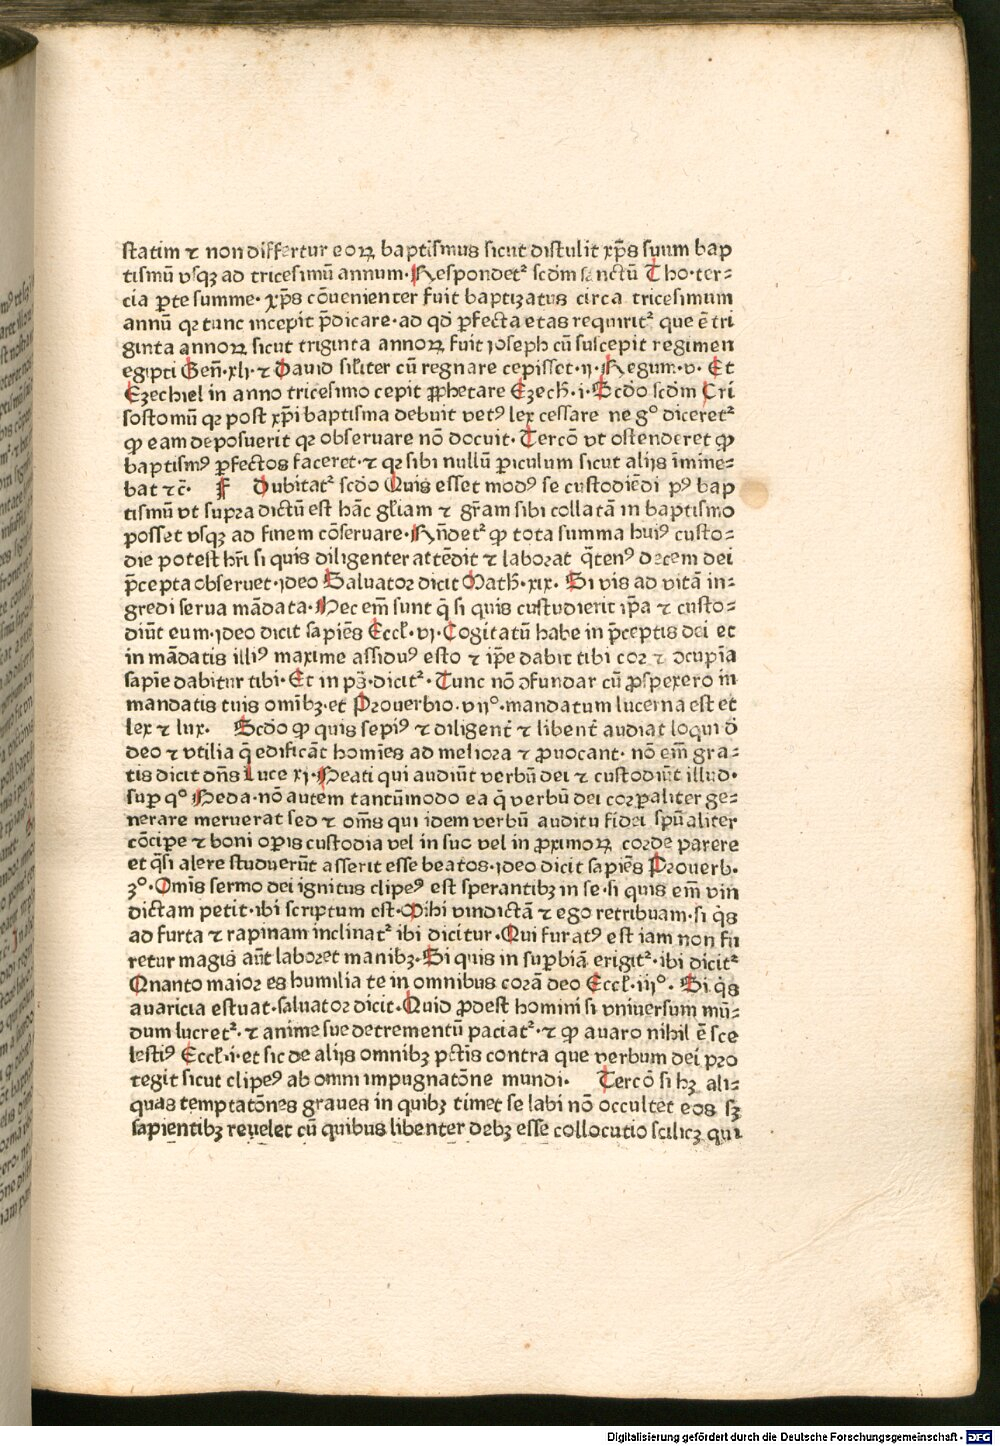 statim ⁊ non differtur eoꝝ baptismus sicut distulit xp̄s suum bap
tismū vsqꝫ ad tricesimū annum· Respondetᷣ scd̄m sanctū Tho·ter⸗
cia ꝑte summe· xp̄s cōuenienter fuit baptizatus circa tricesimum
annū qꝛ tunc incepit p̄dicare·ad qd̄ ꝑfecta etas requiritᷣ que ē tri
ginta annoꝝ sicut triginta annoꝝ fuit ioseph cū suscepit regimen
egipti Gen̄·xlj·⁊ Dauid sil̄iter cū regnare cepisset·ij·Regum·v· Et
Ezechiel in anno tricesimo cepit ꝓphetare Ezech̄·i·Scd̄o scd̄m Cri
sostomū qꝛ post xp̄i baptisma debuit vetꝰ lex cessare ne g° diceretᷣ
ꝙ eam deposuerit qꝛ obseruare nō docuit· Tercō vt ostenderet ꝙ
baptismꝰ ꝑfectos faceret·⁊ qꝛ sibi nullū ꝑiculum sicut alijs īmine⸗
bat ⁊c̄· F Dubitatᷣ scd̄o Quis esset modꝰ se custodiēdi pꝰ bap
tismū vt supra dictū est hāc gl̄iam ⁊ gr̄am sibi collatā in baptismo
posset vsqꝫ ad finem cōseruare·Rn̄detᷣ ꝙ tota summa huiꝰ custo⸗
die potest hr̄i si quis diligenter attēdit ⁊ laborat q̄tenꝰ decem dei
p̄cepta obseruet·ideo Saluator dicit Math̄·xix· Si vis ad vitā in⸗
gredi serua mādata·Hec em̄ sunt q̄ si quis custudierit ip̄a ⁊ custo⸗
diūt eum·ideo dicit sapiēs Eccl̄·vj·Cogitatū habe in p̄ceptis dei et
in mādatis illiꝰ maxime assiduꝰ esto ⁊ ip̄e dabit tibi cor ⁊ ꝯcupīa
sapīe dabitur tibi·Et in pꝫ̄·dicitᷣ· Tunc nō ꝯfundar cū ꝓspexero in
mandatis tuis omībꝫ·et Prouerbio·vij°·mandatum lucerna est et
lex ⁊ lux· Scd̄o ꝙ quis sepiꝰ ⁊ diligent̄ ⁊ libent̄ audiat loqui d̄
deo ⁊ vtilia q̄ edificāt homīes ad meliora ⁊ ꝓuocant· nō em̄ gra⸗
tis dicit dn̄s Luce xj·Beati qui audiūt verbū dei ⁊ custodiūt illud·
suꝑ q° Beda·nō autem tantūmodo ea q̄ verbū dei corꝑaliter ge⸗
nerare meruerat sed ⁊ om̄s qui idem verbū auditu fidei spūaliter
cōcipe ⁊ boni oꝑis custodia vel in suo vel in ꝓximoꝝ corde parere
et q̄si alere studuerūt asserit esse beatos·ideo dicit sapiēs Prouerb·
3°·Omīs sermo dei ignitus clipeꝰ est sperantibꝫ in se·si quis em̄ vin
dictam petit·ibi scriptum est·Mihi vindictā ⁊ ego retribuam·si q̄s
ad furta ⁊ rapinam inclinatᷣ ibi dicitur·Qui furatꝰ est iam non fu
retur magis aūt laboret manibꝫ·Si quis in suꝑbiā erigitᷣ·ibi dicitᷣ
Qnanto maior es humilia te in omnibus corā deo Eccl̄·iij°· Si q̄s
auaricia estuat·saluator dicit·Quid ꝓdest homini si vniuersum mū⸗
dum lucretᷣ·⁊ anime sue detrementū paciatᷣ·⁊ ꝙ auaro nihil ē sce
lestiꝰ Eccl̄·i·et sic de alijs omnibꝫ pctīs contra que verbum dei pro
tegit sicut clipeꝰ ab omni impugnatōne mundi· Tercō si hꝫ ali⸗
quas temptatōnes graues in quibꝫ timet se labi nō occultet eos sꝫ
sapientibꝫ reuelet cū quibus libenter debꝫ esse collocutio scilicꝫ qui
Digitalisierung gefördert durch die Deutsche Forschungsgemeinschaft - DFG